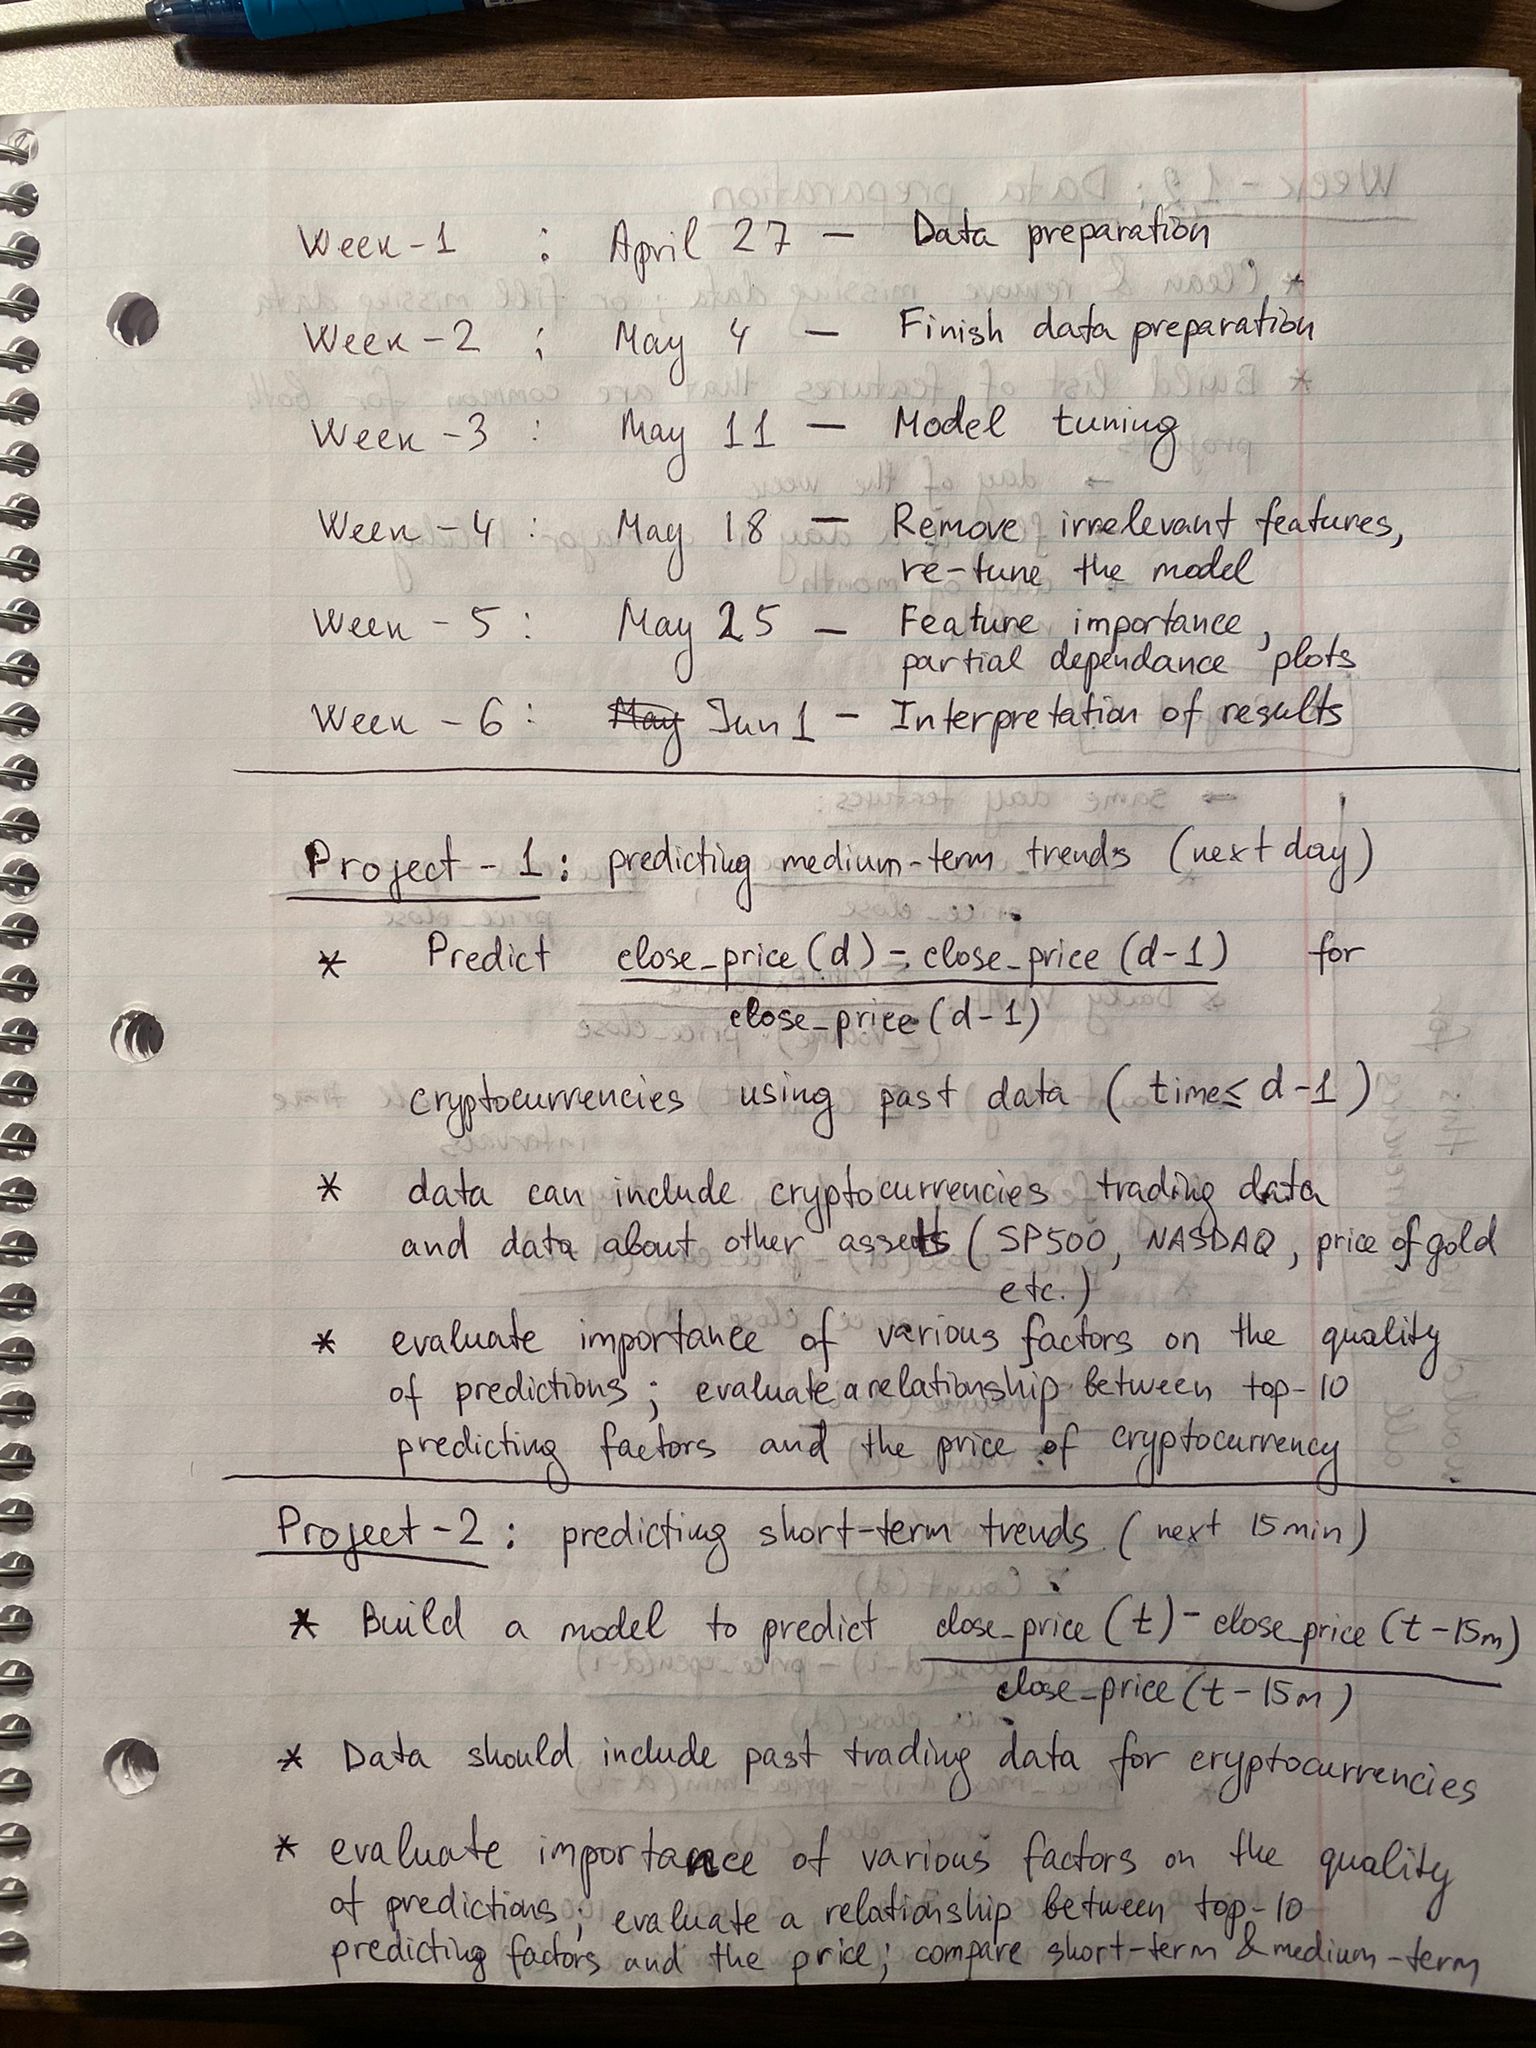 Week-1 : April 27 — Data preparation
Week-2 : May 4 — Finish data preparation
Week-3 : May 11 — Model tuning
Week-4 : May 18 — Remove irrelevant features,
re-tune the model
Week-5 : May 25 — Feature importance,
partial dependance plots
Week-6 : May Jun 1 — Interpretation of results
Project-1 : predicting medium-term trends (next day)
* Predict close_price(d) - close_price(d-1) for
close_price(d-1)
cryptocurrencies using past data (time ≤ d-1)
* data can include cryptocurrencies trading data
and data about other assets (SP500, NASDAQ, price of gold
etc.)
* evaluate importance of various factors on the quality
of predictions; evaluate a relationship between top-10
predicting factors and the price of cryptocurrency
Project-2 : predicting short-term trends (next 15 min)
* Build a model to predict close_price(t) - close_price(t-15m)
close_price(t-15m)
* Data should include past trading data for cryptocurrencies
* evaluate importance of various factors on the quality
of predictions; evaluate a relationship between top-10
predicting factors and the price; compare short-term & medium-term